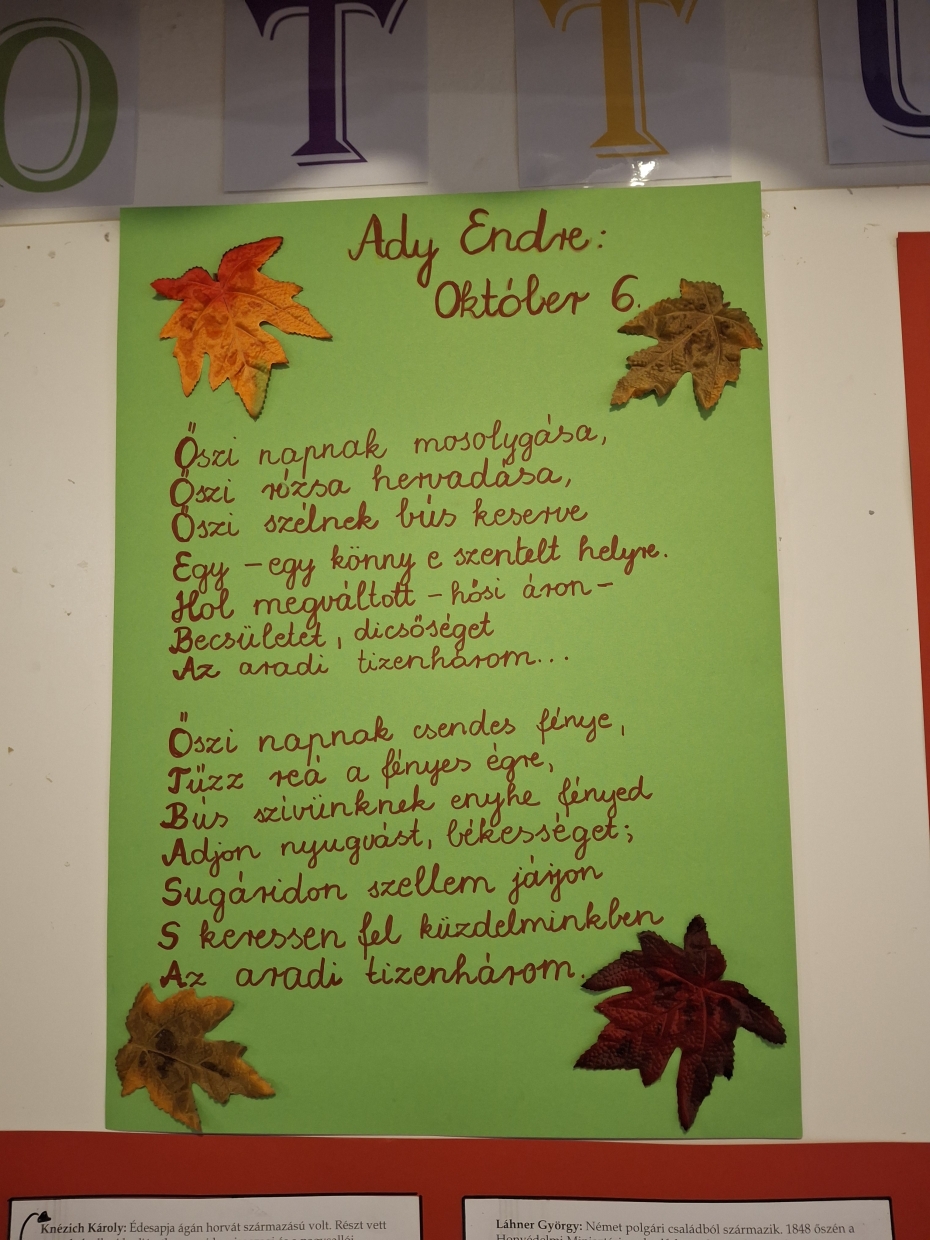 O T T U
Ady Endre:
Október 6.
Őszi napnak mosolygása,
Őszi rózsa hervadása,
Őszi szélnek bús keserve
Egy-egy könny e szentelt helyre.
Hol megváltott - hősi áron -
Becsületet, dicsőséget
Az aradi tizenhárom...
Őszi napnak csendes fénye,
Tűzz reá a fényes égre,
Bús szivünknek enyhe fényed
Adjon nyugvást, békességet;
Sugáridon szellem járjon
S keressen fel küzdelminkben
Az aradi tizenhárom.
Knézich Károly: Édesapja ágán horvát származású volt. Részt vett
Láhner György: Német polgári családból származik. 1848 őszén a